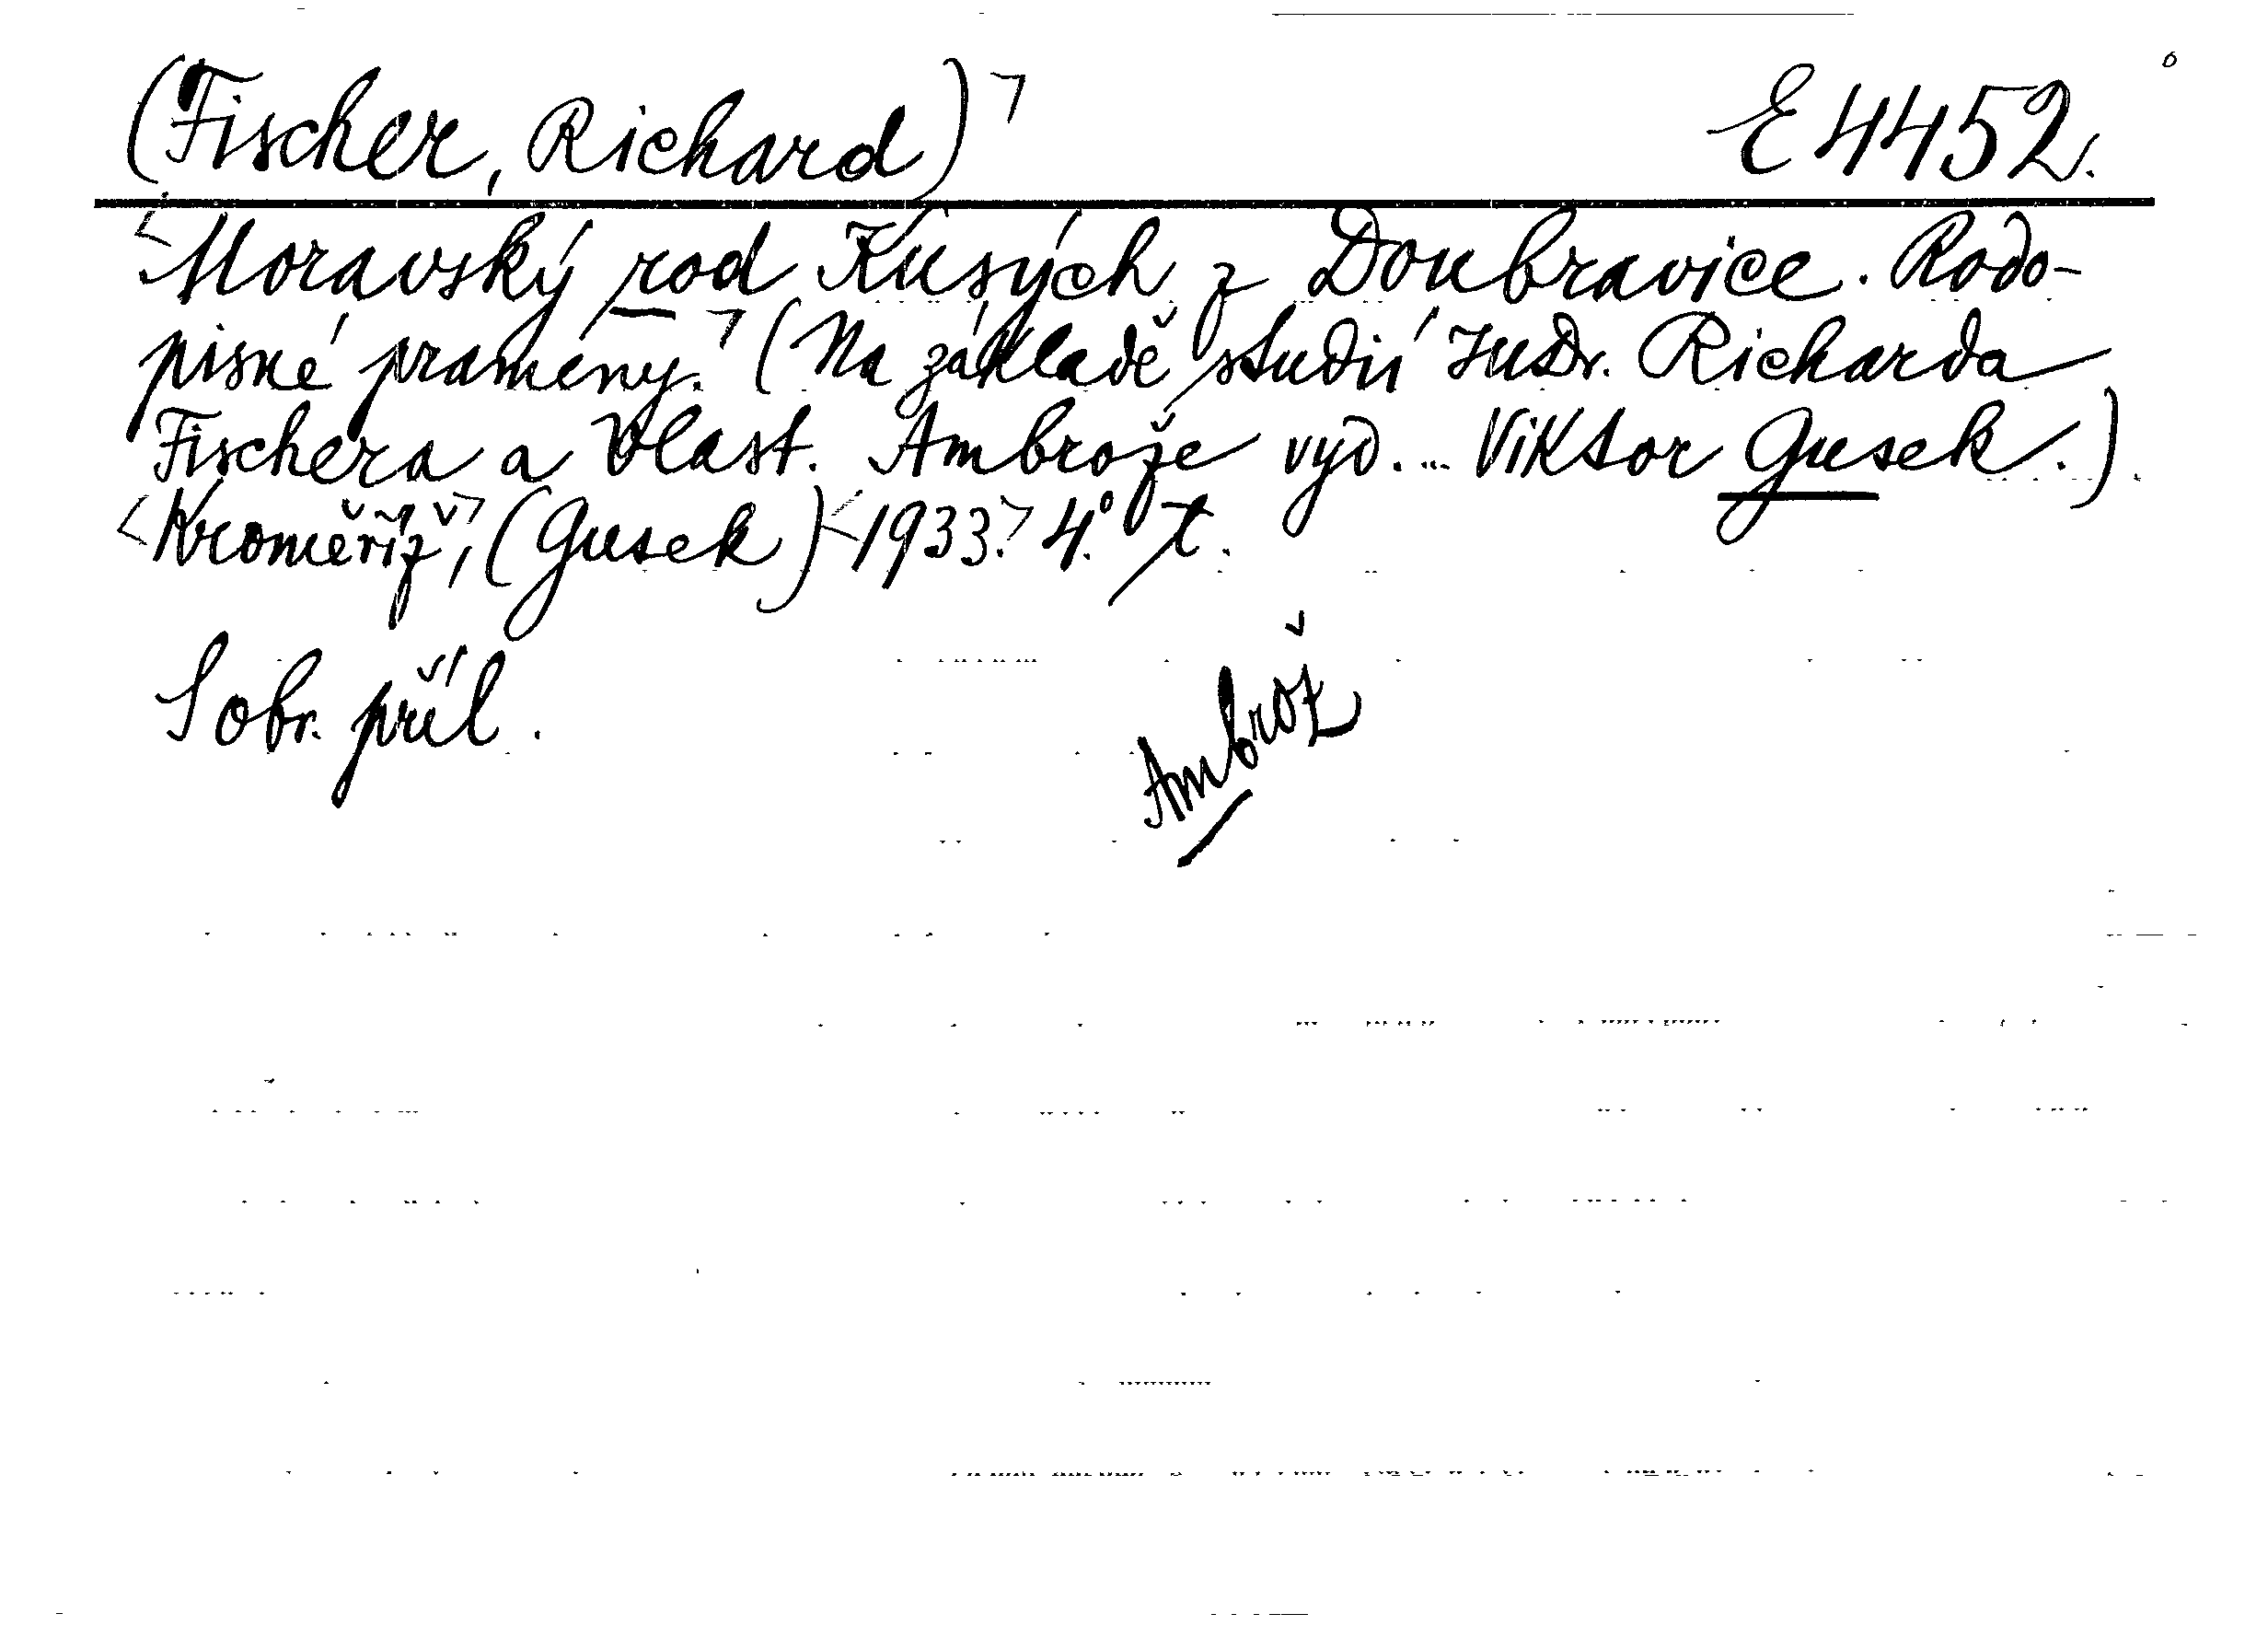 (Fischer, Richard)⌝ E 4452.
<Moravský rod Kusých z Doubravice. Rodo-
pisné prameny.⌝ (Na základě studií JuDr. Richarda
Fischera a Vlast. Ambrože vyd. ... Viktor Gusek.)
<Kroměříž,⌝ (Gusek) <1933.⌝ 4.° t.
S obr. příl.
Ambrož